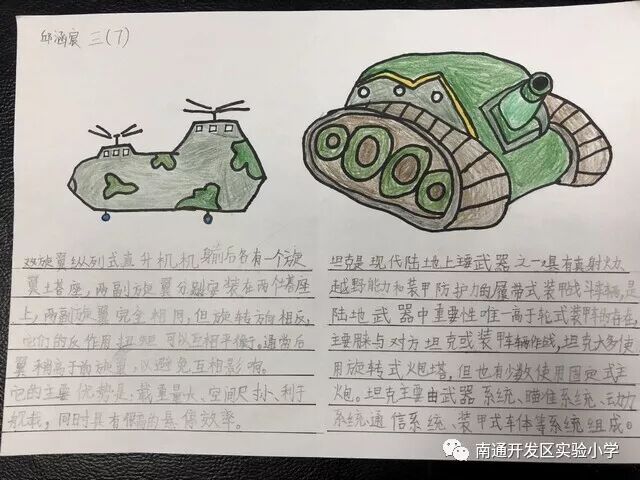 邱涵宸 三(7)
双旋翼纵列式直升机机身前后各有一个旋
翼塔座，两副旋翼分别安装在两个塔座
上，两副旋翼完全相同，但旋转方向相反，
它们的反作用扭矩可以互相平衡。通常后
翼稍高于前旋翼，以避免互相影响。
它的主要优势是：载重量大、空间尺寸小、利于
舰载，同时具有很高的悬停效率。
坦克是现代陆地上武器之一，具有直射火力
越野能力和装甲防护力的履带式装甲战斗车辆，是
陆地武器中重要性唯一高于轮式装甲车的存在，
主要用来与对方坦克或装甲车辆作战，坦克大多使
用旋转式火炮塔，但也有少数使用固定式主
炮。坦克主要由武器系统、瞄准系统、动力
系统、通信系统、装甲式车体等系统组成。
南通开发区实验小学